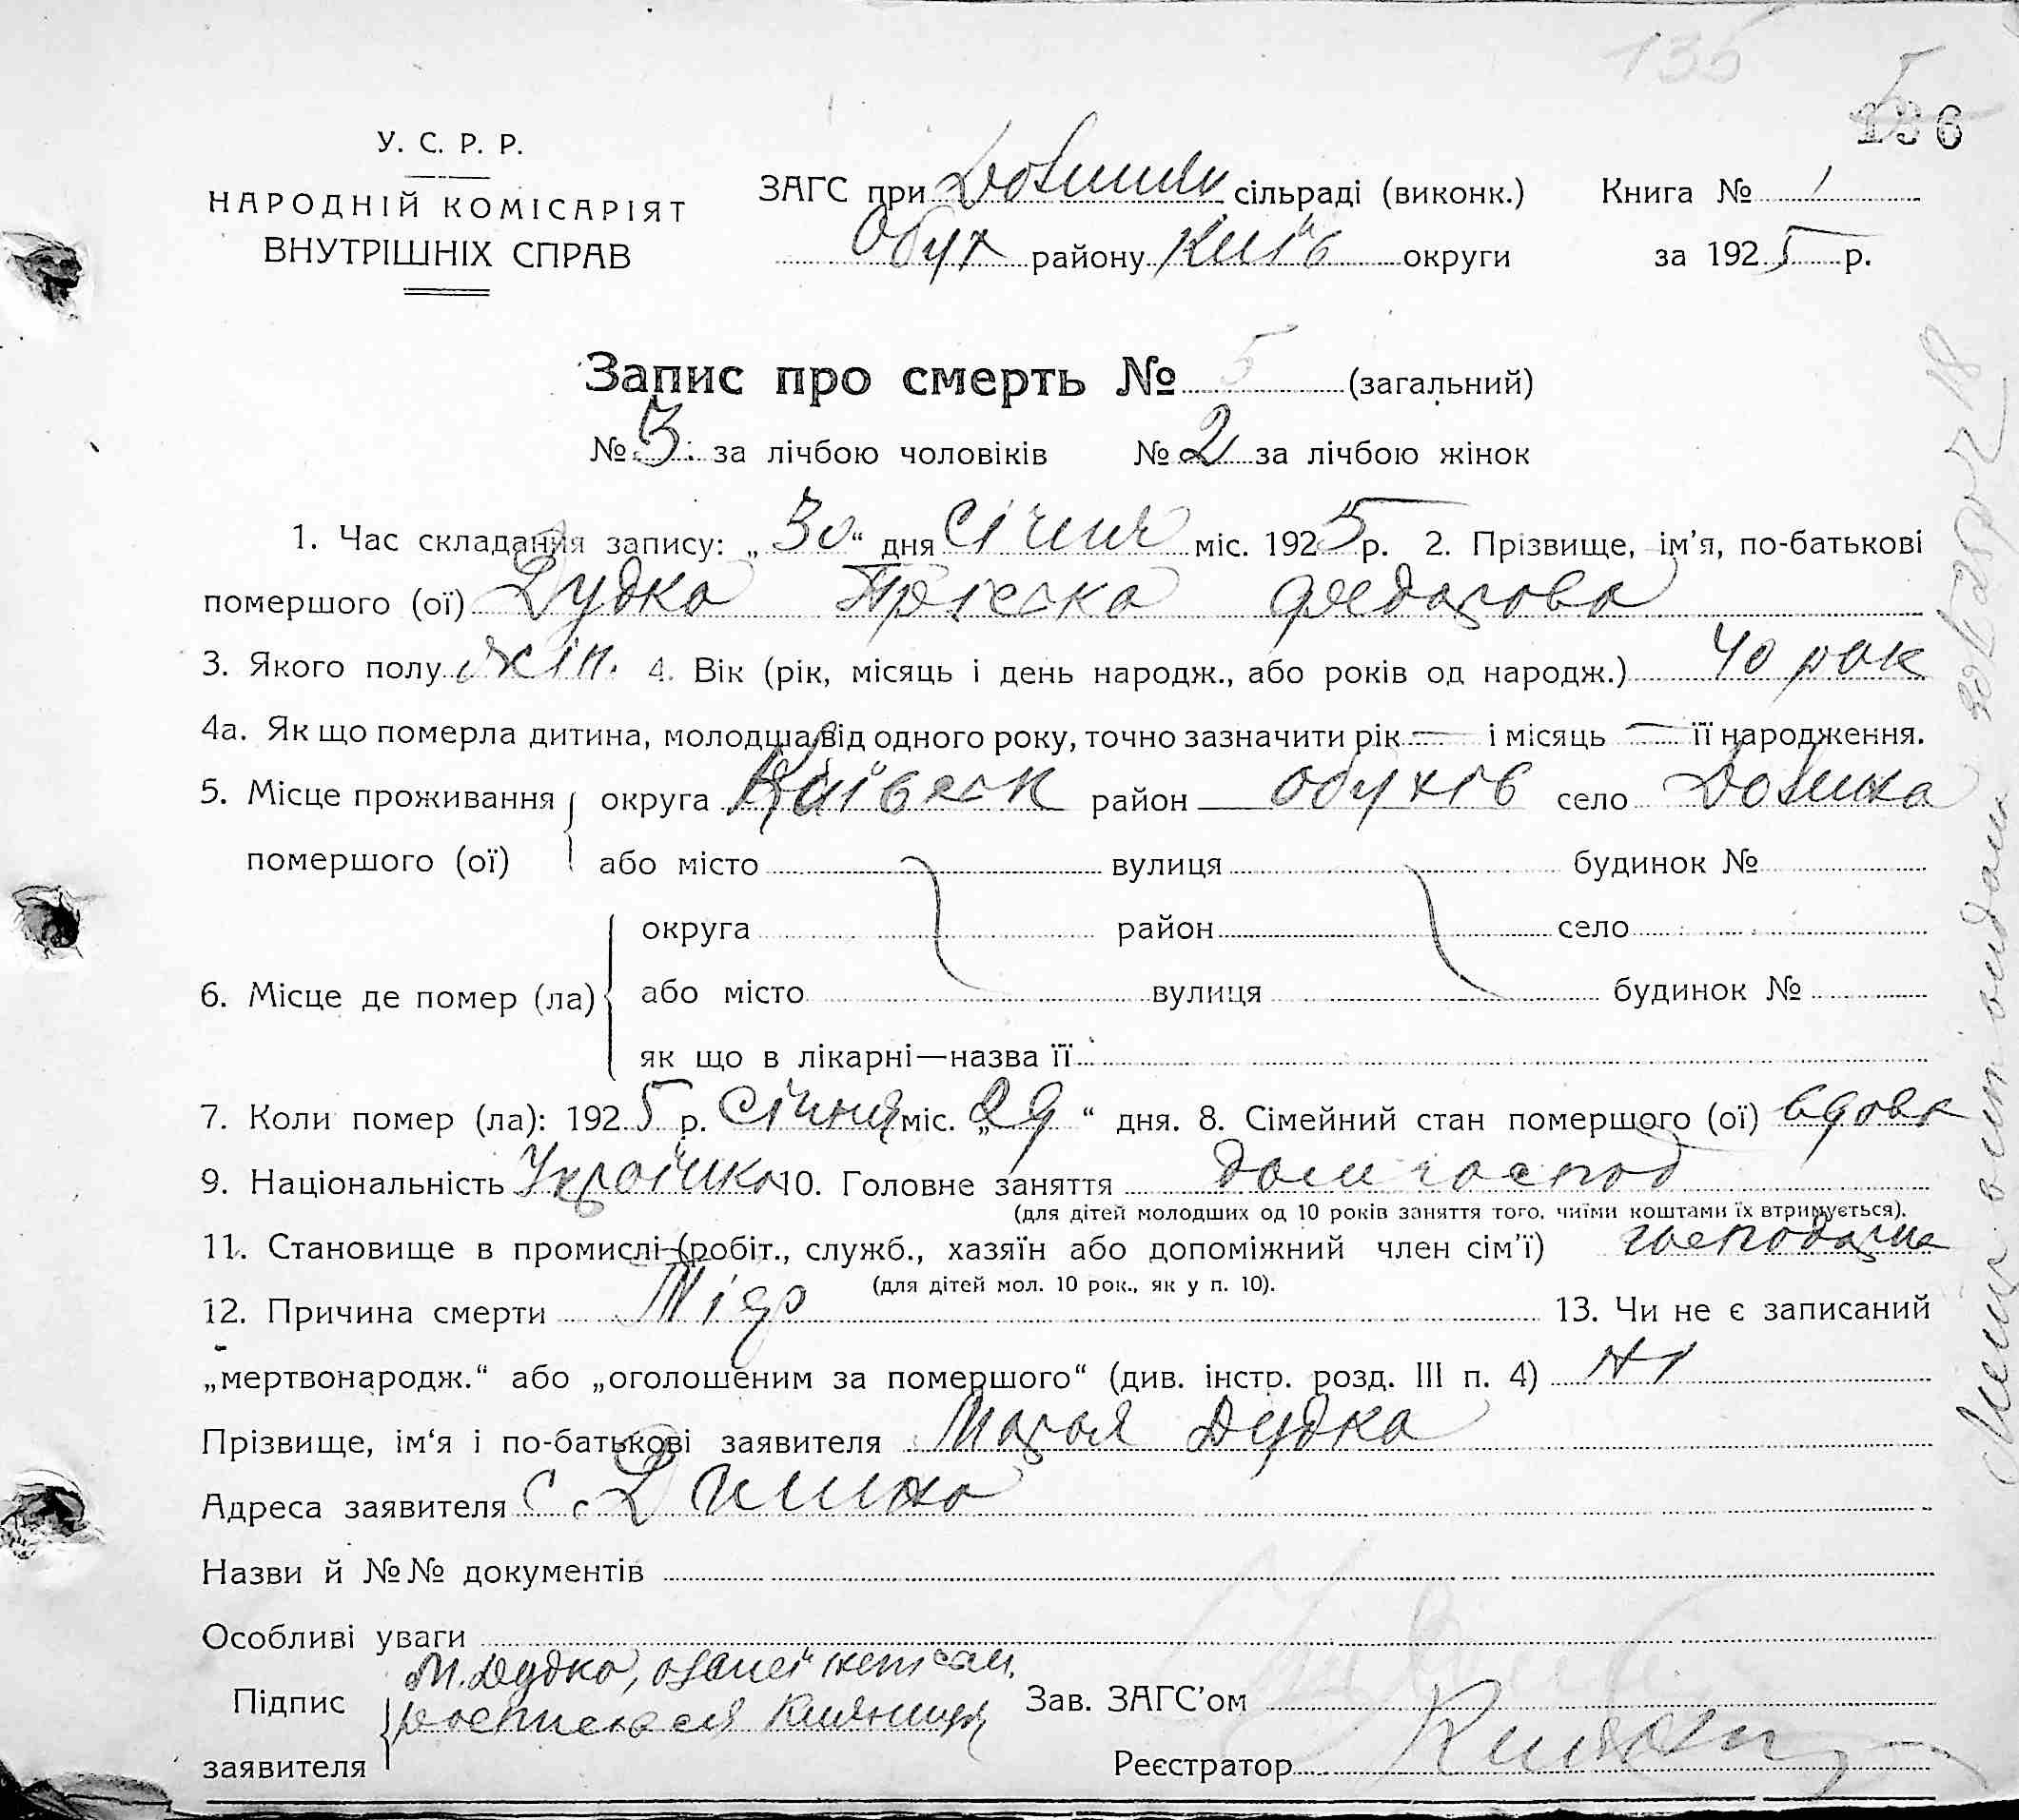 135
5
136
У. С. Р. Р.
НАРОДНІЙ КОМІСАРІЯТ
ВНУТРІШНІХ СПРАВ
ЗАГС при сільраді (виконк.) Книга № 1
Обух району Київ округи за 1925 р.
Запис про смерть № 5 (загальний)
№ 3 за лічбою чоловіків № 2 за лічбою жінок
1. Час складання запису: „30“ дня Січня міс. 1925 р. 2. Прізвище, ім'я, по-батькові
помершого (ої) Дудка Пріська Федорова
3. Якого полу жін. 4. Вік (рік, місяць і день народж., або років од народж.) 40 рок
4а. Як що померла дитина, молодша від одного року, точно зазначити рік — і місяць — її народження.
5. Місце проживання округа Київськ район Обухів село
помершого (ої) або місто вулиця будинок №
округа район село
6. Місце де помер (ла) або місто вулиця будинок №
як що в лікарні—назва її
7. Коли помер (ла): 1925 р. Січня міс. „29“ дня. 8. Сімейний стан помершого (ої) вдова
9. Національність Українка 10. Головне заняття дом господ
(для дітей молодших од 10 років заняття того, чиїми коштами їх втримується).
11. Становище в промислі (робіт., служб., хазяїн або допоміжний член сім'ї) господарка
(для дітей мол. 10 рок., як у п. 10).
12. Причина смерти 13. Чи не є записаний
„мертвонародж.“ або „оголошеним за помершого“ (див. інстр. розд. III п. 4) Ні
Прізвище, ім'я і по-батькові заявителя Мар'я Дудка
Адреса заявителя с.
Назви й №№ документів
Особливі уваги
М. Дудка,
Підпис Зав. ЗАГС'ом
заявителя Реєстратор